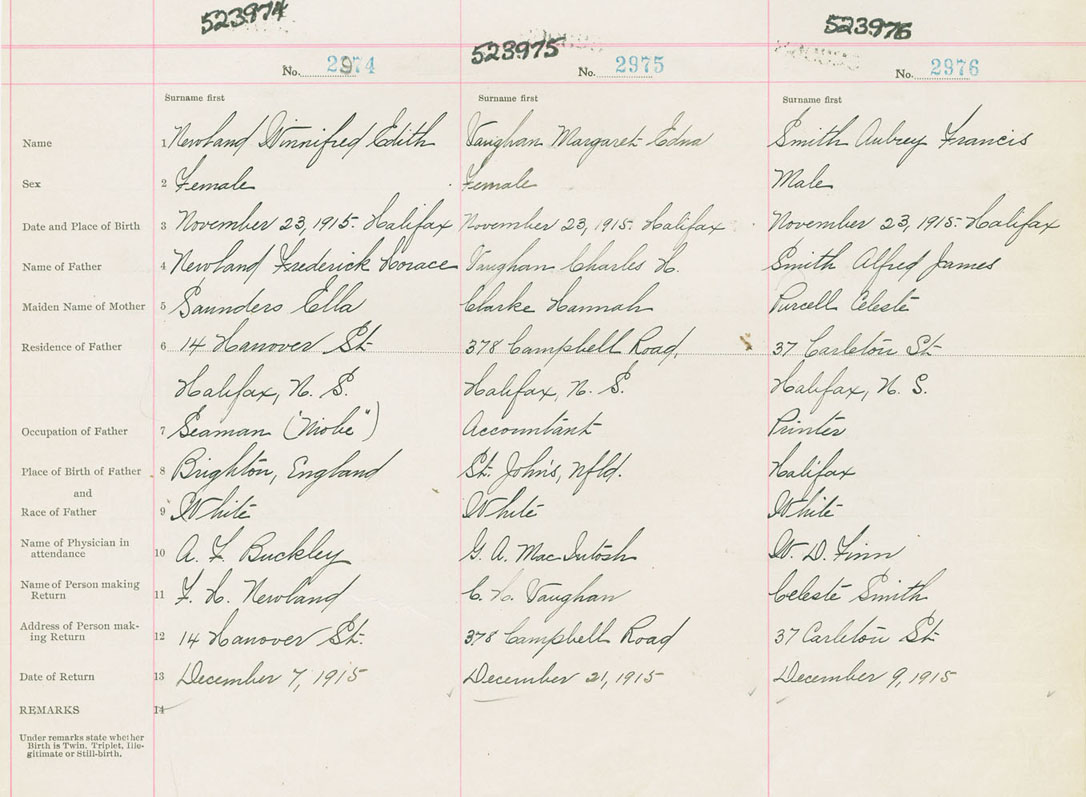 523974
523975
523976
No. 2974
No. 2975
No. 2976
Surname first
Surname first
Surname first
Name 1 Newland Winnifred Edith Vaughan Margaret Edna Smith Aubrey Francis
Sex 2 Female Female Male
Date and Place of Birth 3 November 23, 1915. Halifax November 23, 1915. Halifax November 23, 1915. Halifax
Name of Father 4 Newland Frederick Horace Vaughan Charles H. Smith Alfred James
Maiden Name of Mother 5 Saunders Ella Clarke Hannah Purcell Celeste
Residence of Father 6 14 Hanover St. 378 Campbell Road, 37 Carleton St.
Halifax, N. S. Halifax, N. S. Halifax, N. S.
Occupation of Father 7 Seaman ("Niobe") Accountant Printer
Place of Birth of Father 8 Brighton, England St. John's, Nfld. Halifax
and
Race of Father 9 White White White
Name of Physician in
attendance 10 A. F. Buckley G. A. MacIntosh W. D. Finn
Name of Person making
Return 11 F. H. Newland C. H. Vaughan Celeste Smith
Address of Person mak-
ing Return 12 14 Hanover St. 378 Campbell Road 37 Carleton St.
Date of Return 13 December 7, 1915 December 21, 1915 December 9, 1915
REMARKS 14
Under remarks state whether
Birth is Twin, Triplet, Ille-
gitimate or Still-birth.